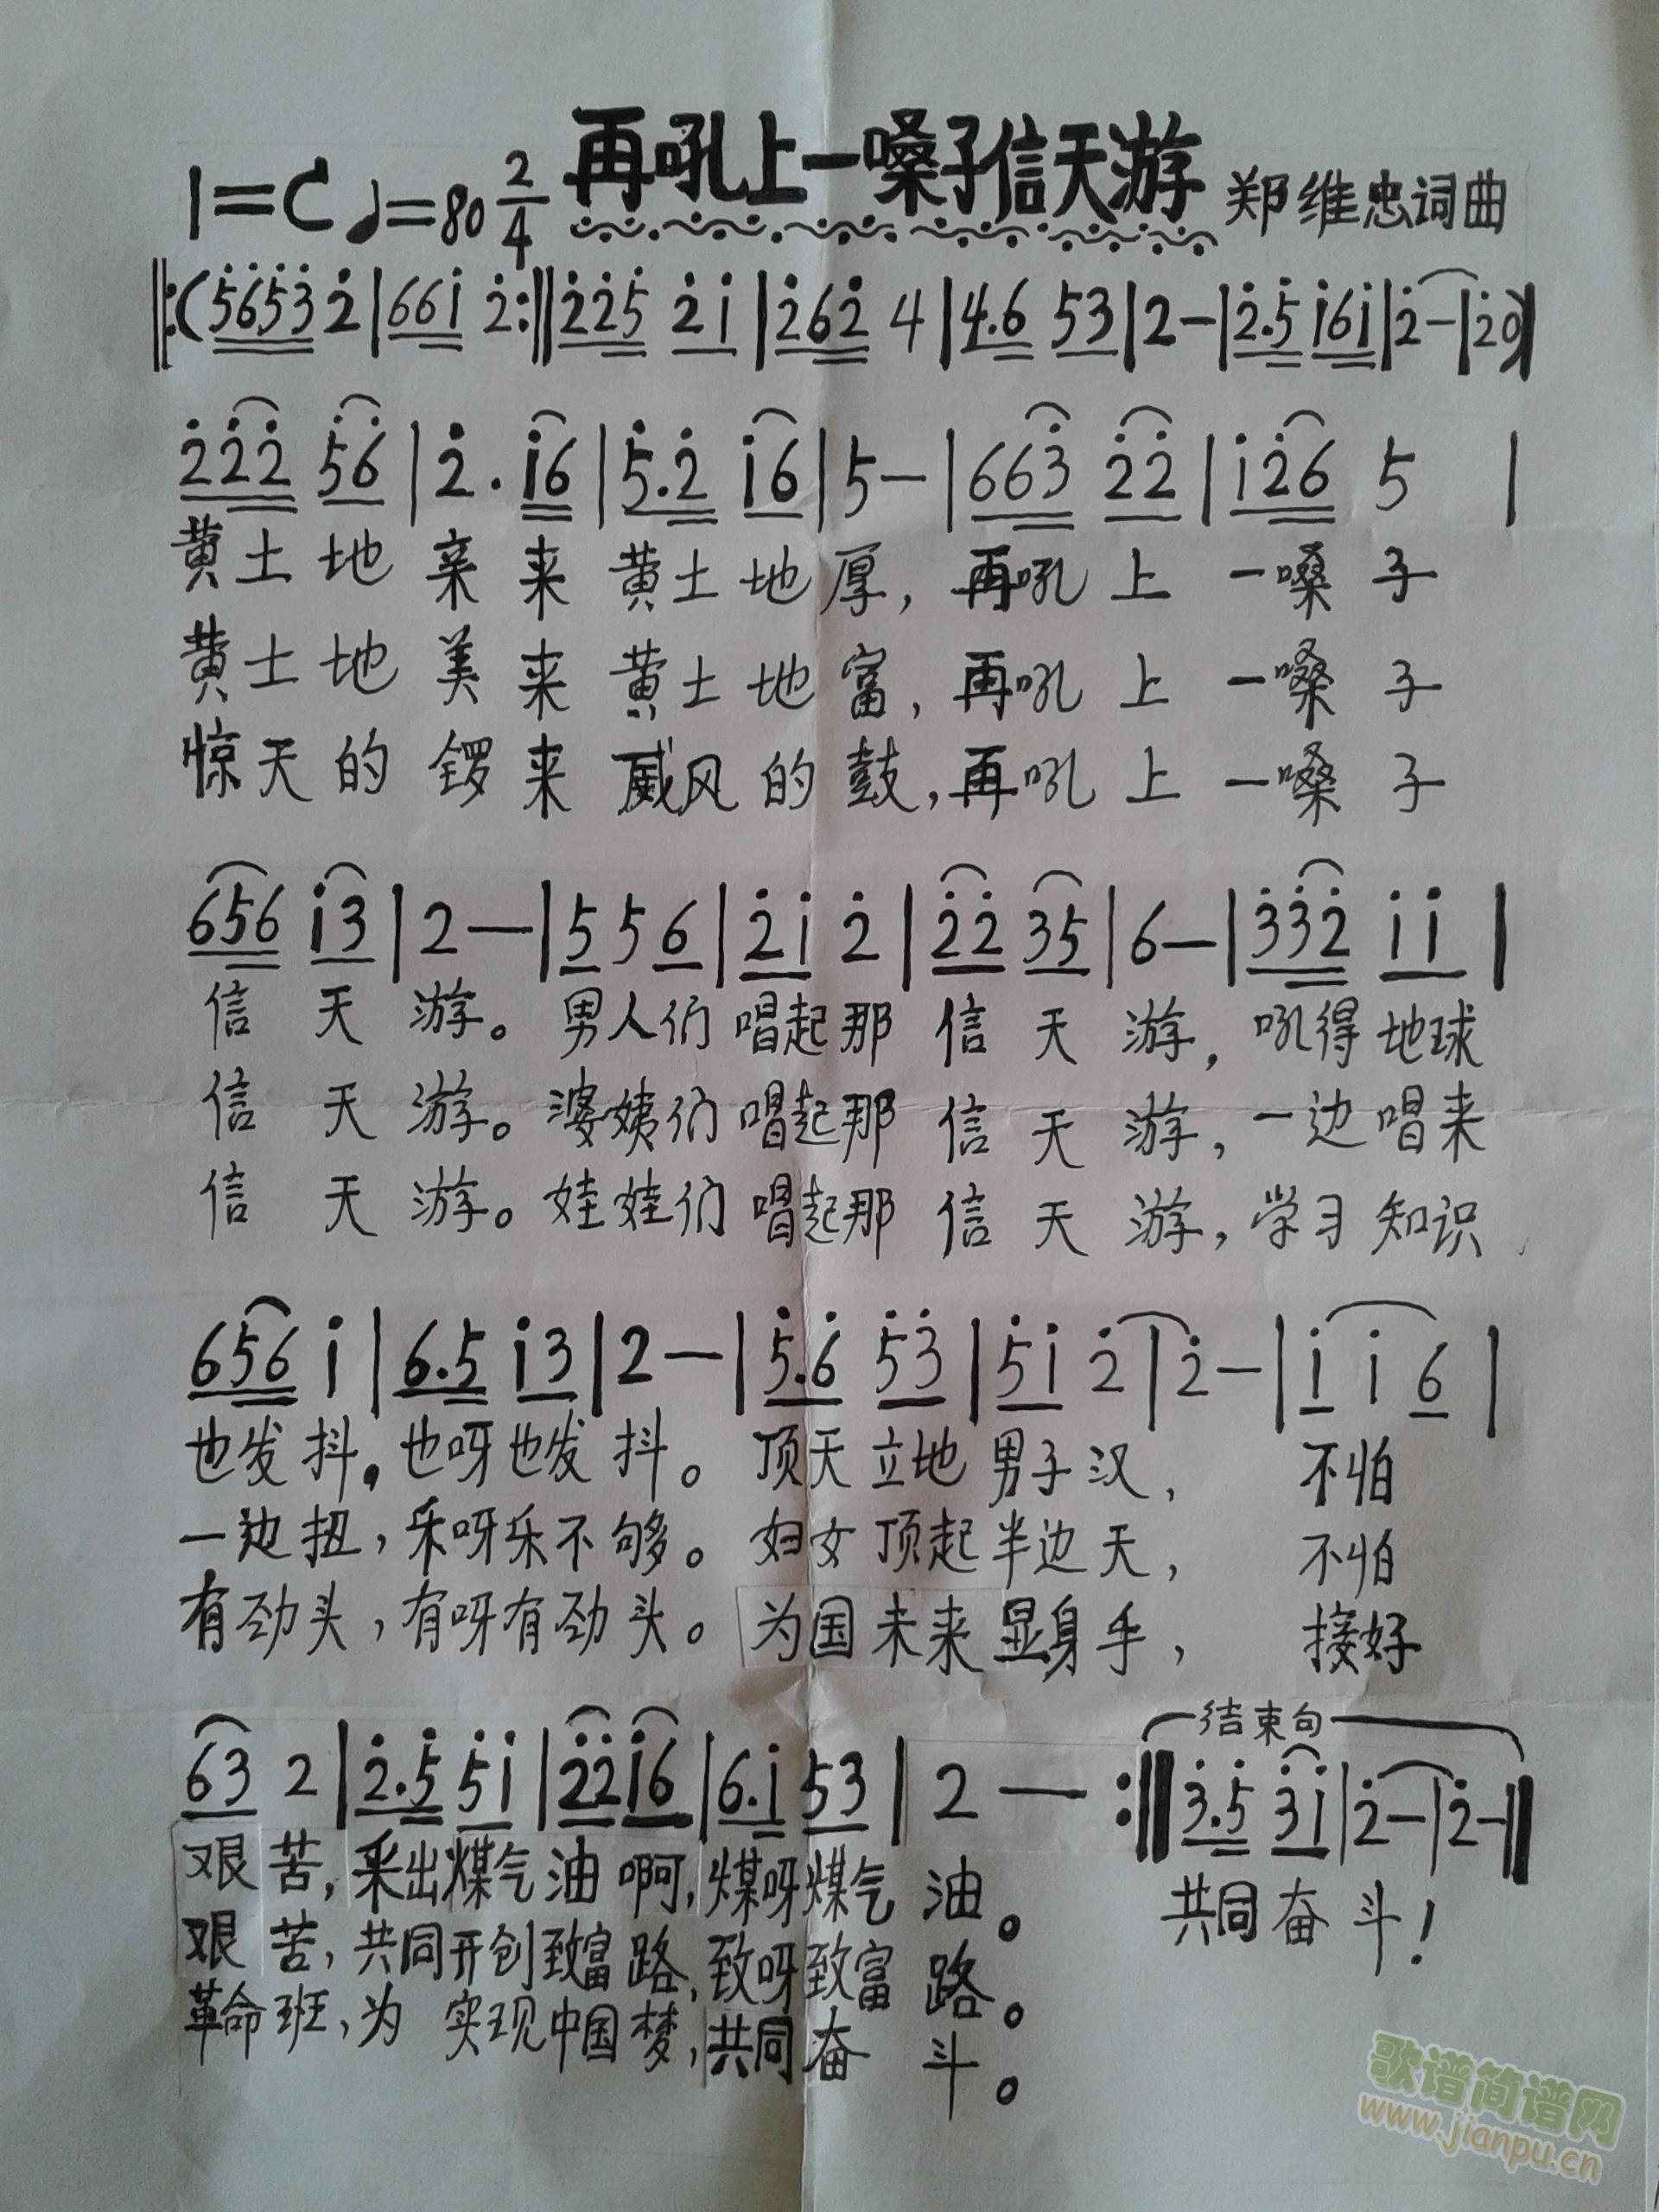 再吼上一嗓子信天游
1=C ♩=80 2/4 郑维忠词曲
‖:(5̇6̇5̇3̇ 2̇|661̇ 2̇:‖2̇2̇5̇ 2̇1̇|2̇62̇ 4|4.6 53|2－|2̇.5̇ 1̇61̇|2̇－|2̇0)|
2̇2̇2̇ 5̇6̇|2̇.1̇6|5̇.2̇ 1̇6|5－|663̇ 2̇2̇|1̇2̇6 5|
黄土地亲来黄土地厚,再吼上一嗓子
黄土地美来黄土地富,再吼上一嗓子
惊天的锣来威风的鼓,再吼上一嗓子
656 1̇3|2－|556|2̇1̇ 2̇|2̇2̇ 35|6－|3̇3̇2̇ 1̇1̇|
信天游。男人们唱起那信天游,吼得地球
信天游。婆姨们唱起那信天游,一边唱来
信天游。娃娃们唱起那信天游,学习知识
656 1̇|6.5 1̇3|2－|5̇.6̇ 5̇3̇|5̇1̇ 2̇|2̇－|1̇1̇6|
也发抖。也呀也发抖。顶天立地男子汉,不怕
一边扭,乐呀乐不够。妇女顶起半边天,不怕
有劲头,有呀有劲头。为国未来显身手,接好
结束句
63 2|2̇.5̇ 5̇1̇|2̇2̇1̇6|6.1̇ 53|2－:‖3̇.5̇ 3̇1̇|2̇－|2̇－‖
艰苦,采出煤气油啊,煤呀煤气油。共同奋斗!
艰苦,共同开创致富路,致呀致富路。
革命班,为实现中国梦,共同奋斗。
歌谱简谱网
www.jianpu.cn